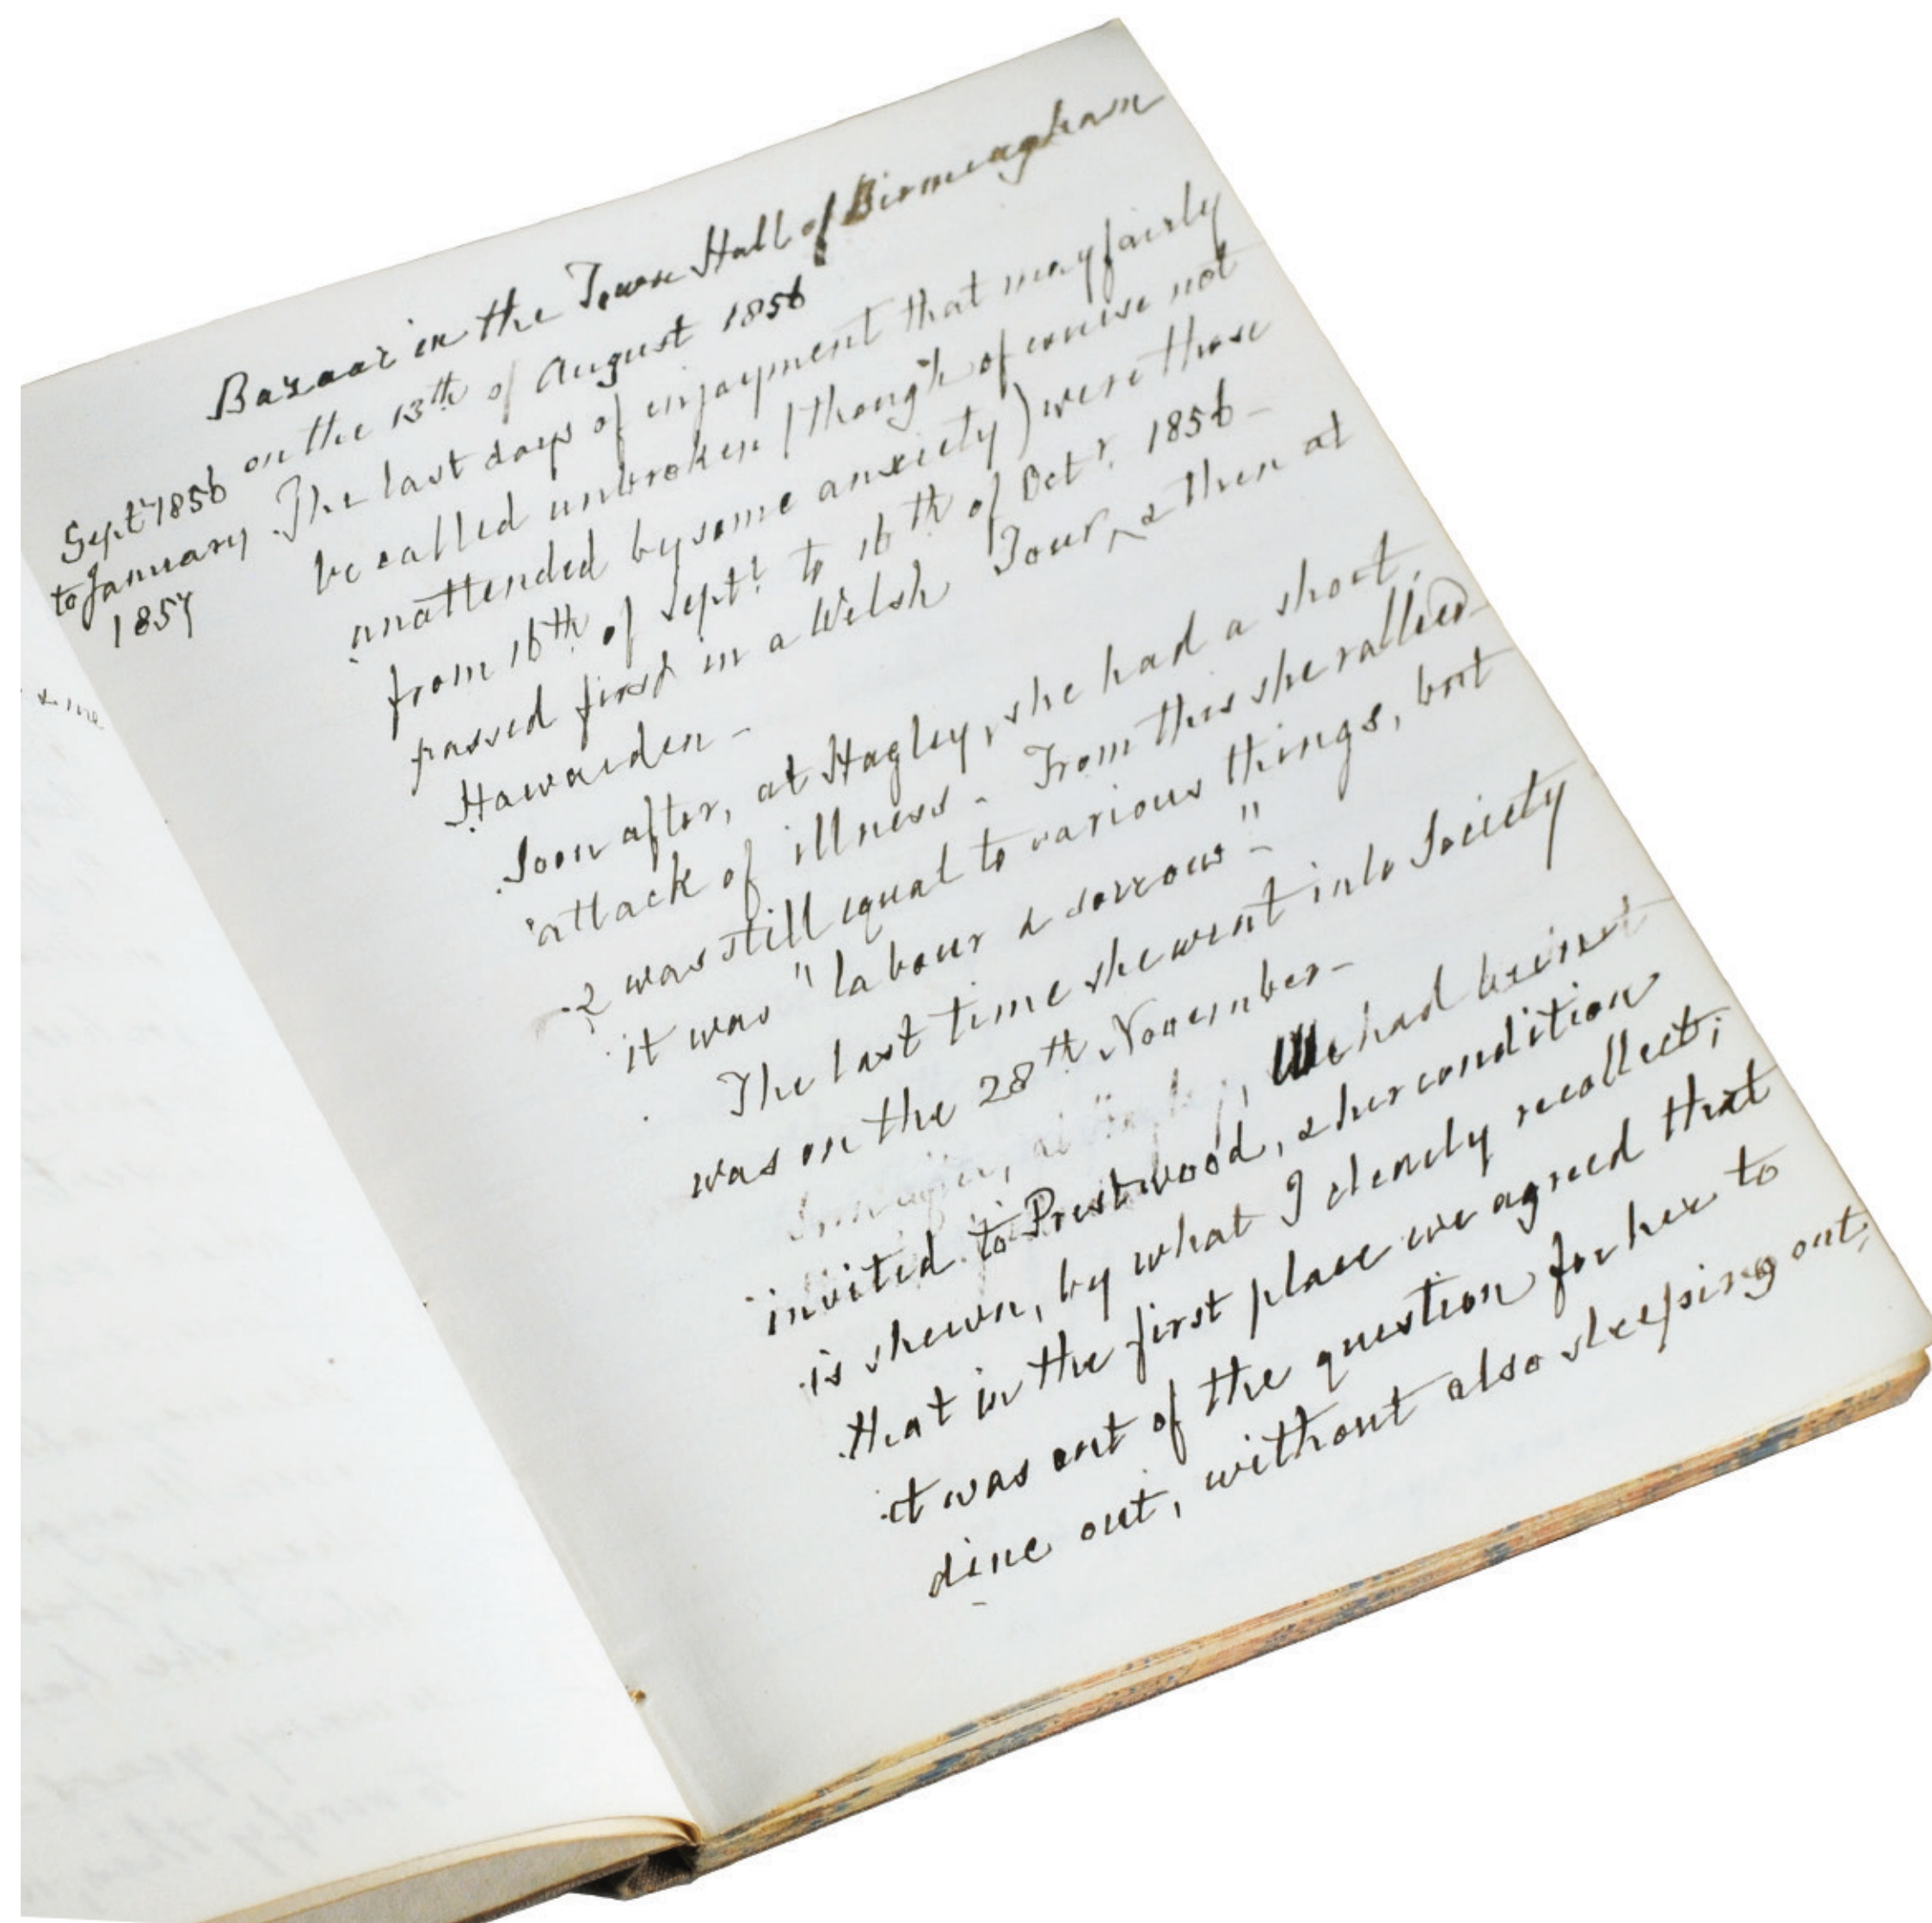 Bazaar in the Town Hall of Birmingham
on the 13th of August 1856
Septr 1856
to January
1857
The last days of enjoyment that may fairly
be called unbroken (though of course not
unattended by some anxiety) were those
from 16th of Septr. to 16th of Octr. 1856 -
passed first in a Welsh Tour, & then at
Hawarden -
Soon after, at Hagley, she had a short
attack of illness - From this she rallied -
& was still equal to various things, but
it was "labour & sorrow" -
The last time she went into Society
was on the 28th November -
We had been
invited to Prestwood, & her condition
is shewn, by what I clearly recollect;
that in the first place we agreed that
it was out of the question for her to
dine out, without also sleeping out;